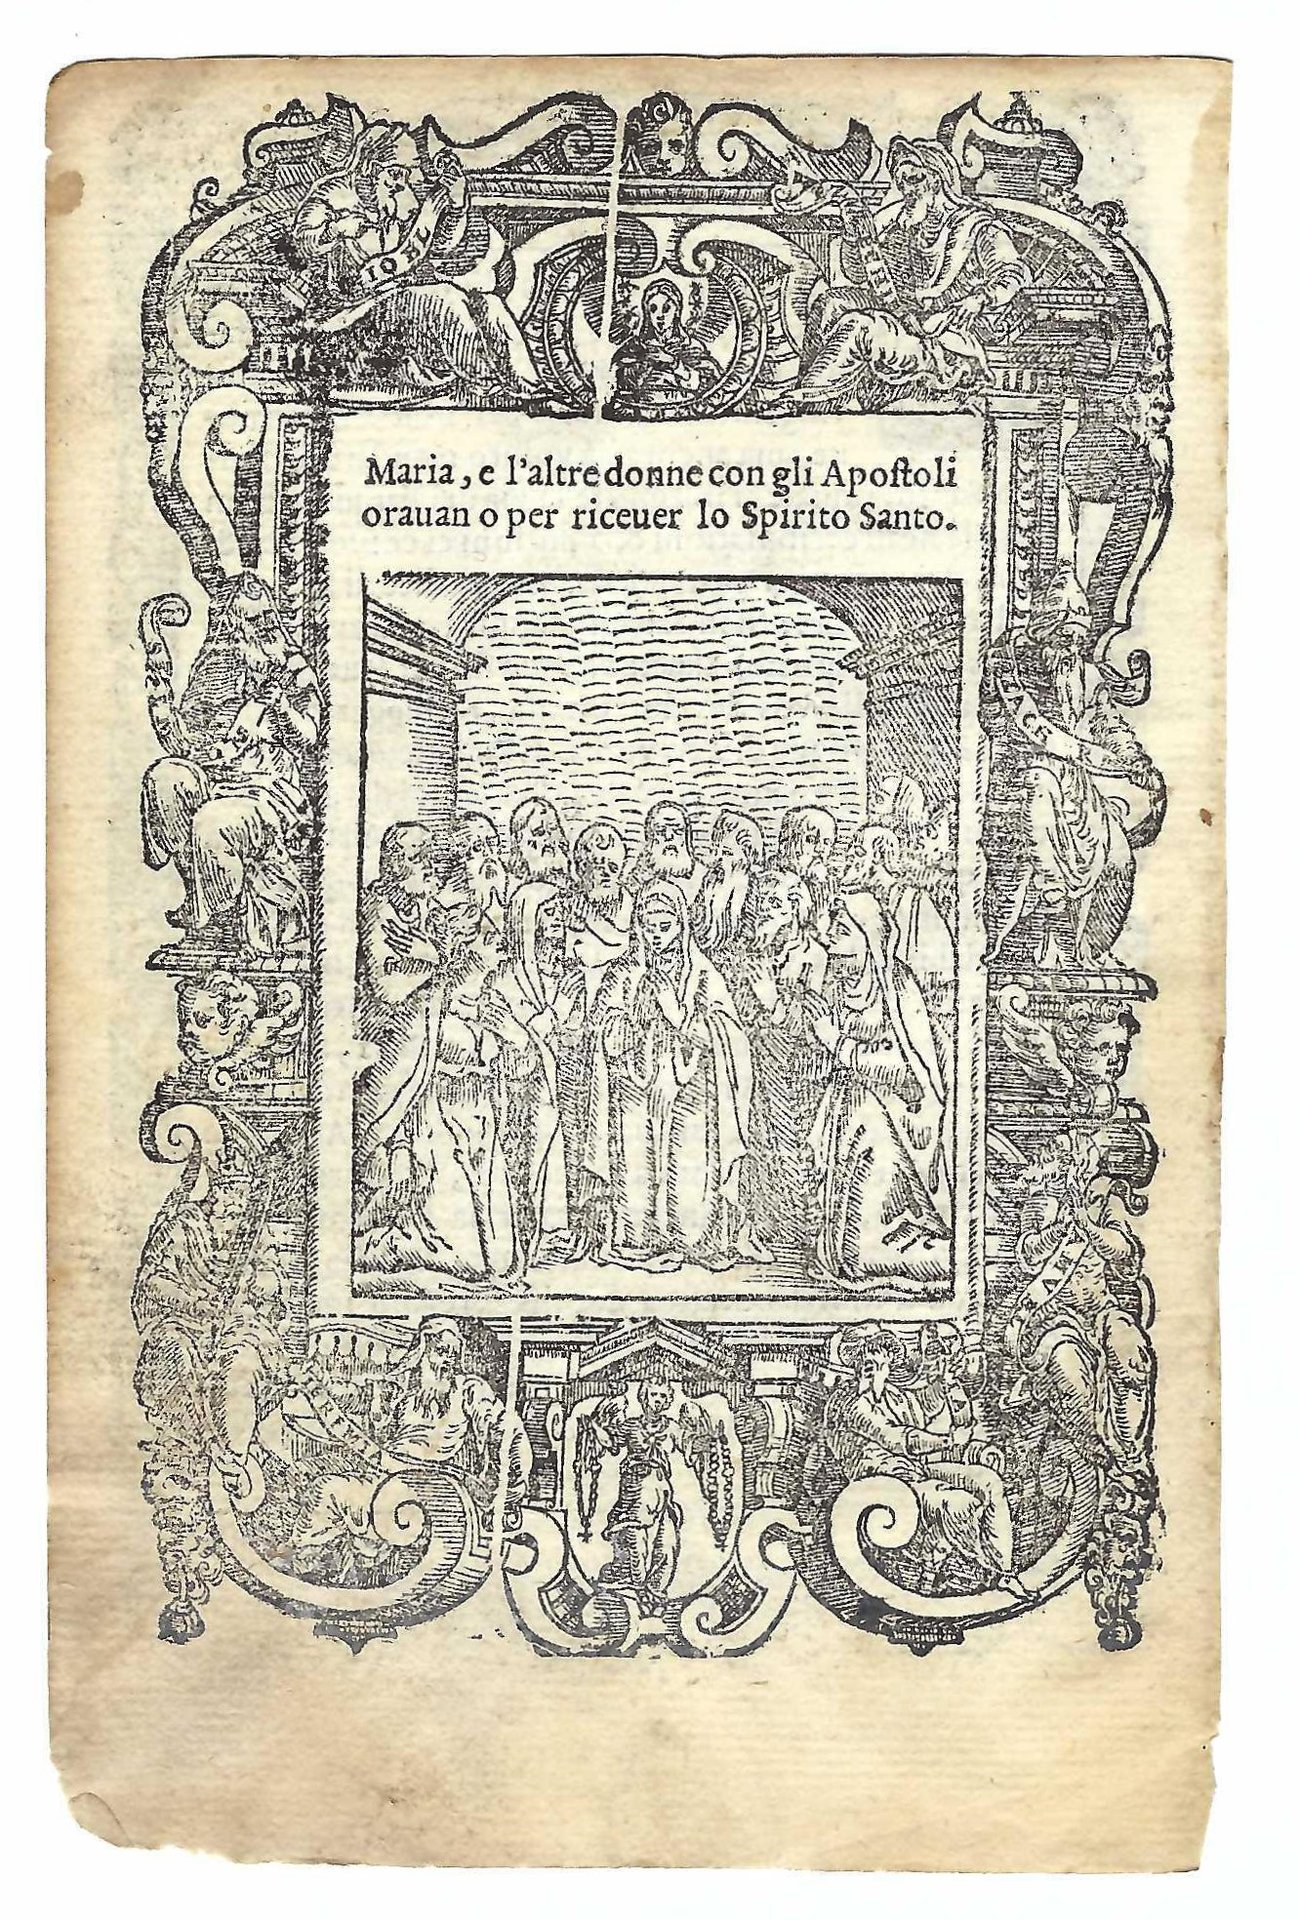 IOEL
Maria, e l'altre donne con gli Apoſtoli
orauan o per riceuer lo Spirito Santo.